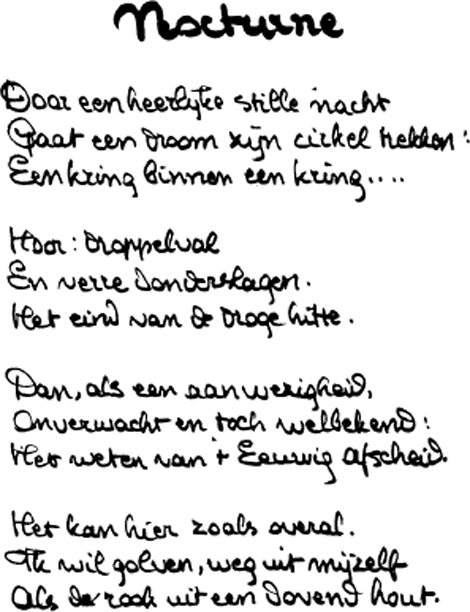 Nocturne
Door een heerlijke stille nacht
Gaat een droom zijn cirkel trekken:
Een kring binnen een kring....
Hoor: droppelval
En verre donderslagen.
Het eind van de droge hitte.
Dan, als een aanwezigheid,
Onverwacht en toch welbekend:
Het weten van 't Eeuwig Afscheid.
Het kan hier zoals overal.
Ik wil golven, weg uit mijzelf
Als de rook uit een dovend hout.